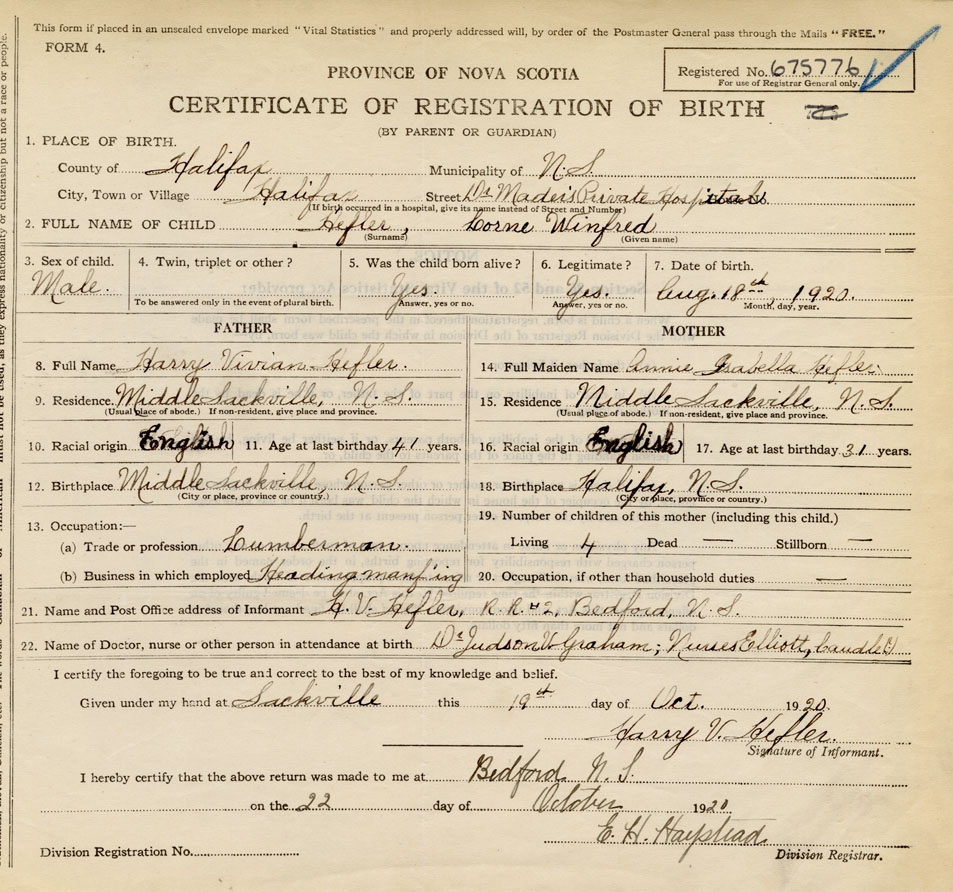 This form if placed in an unsealed envelope marked "Vital Statistics" and properly addressed will, by order of the Postmaster General pass through the Mails "FREE."
FORM 4.
Registered No. 675776
For use of Registrar General only.
PROVINCE OF NOVA SCOTIA
CERTIFICATE OF REGISTRATION OF BIRTH
(BY PARENT OR GUARDIAN)
1. PLACE OF BIRTH.
County of Halifax Municipality of N.S.
City, Town or Village Halifax Street Dr Mader's Private Hospital
(If birth occurred in a hospital, give its name instead of Street and Number)
2. FULL NAME OF CHILD Hefler, Lorne Winfred
(Surname) (Given name)
3. Sex of child. 4. Twin, triplet or other? 5. Was the child born alive? 6. Legitimate? 7. Date of birth.
Male. Yes. Yes. Aug. 18th, 1920.
To be answered only in the event of plural birth. Answer, yes or no. Answer, yes or no. Month, day, year.
FATHER MOTHER
8. Full Name Harry Vivian Hefler. 14. Full Maiden Name Annie Isabella Hefler.
9. Residence Middle Sackville, N.S. 15. Residence Middle Sackville, N.S.
(Usual place of abode.) If non-resident, give place and province. (Usual place of abode.) If non-resident, give place and province.
10. Racial origin English 11. Age at last birthday 41 years. 16. Racial origin English 17. Age at last birthday 31 years.
12. Birthplace Middle Sackville N.S. 18. Birthplace Halifax, N.S.
(City or place, province or country.) (City or place, province or country.)
13. Occupation:— 19. Number of children of this mother (including this child.)
(a) Trade or profession Lumberman Living 4 Dead — Stillborn —
(b) Business in which employed Heading manf'ing 20. Occupation, if other than household duties —
21. Name and Post Office address of Informant H. V. Hefler, R.R. #2, Bedford, N.S.
22. Name of Doctor, nurse or other person in attendance at birth Dr Judson V. Graham; Nurses Elliott, Caudle
I certify the foregoing to be true and correct to the best of my knowledge and belief.
Given under my hand at Sackville this 19th day of Oct. 1920.
Harry V. Hefler.
Signature of Informant.
I hereby certify that the above return was made to me at Bedford N.S.
on the 22 day of October 1920.
E. H. Haystead
Division Registrar.
Division Registration No.